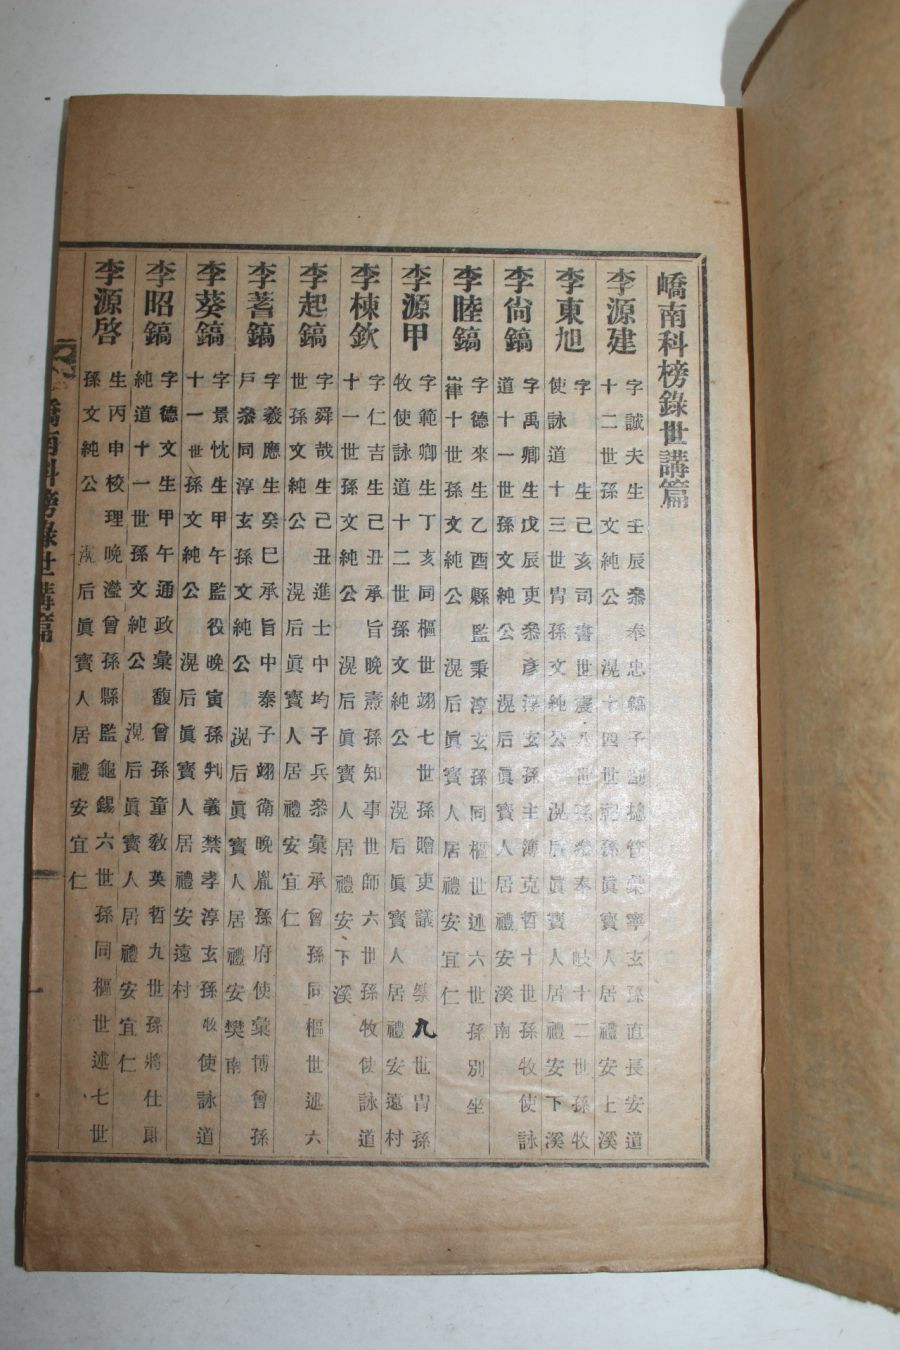 嶠南科榜錄世講篇
李源建 字誠夫生壬辰參奉忠鎬子副摠管彙寧玄孫直長安道
十二世孫文純公滉十四世祀孫眞寶人居禮安上溪
李東旭 字 生己亥司書世震八世孫參奉 岐十二世孫牧
使詠道十三世胄孫文純公滉后眞寶人居禮安下溪
李尙鎬 字禹卿生戊辰吏參彥淳玄孫主簿克哲十世孫牧使詠
道十一世孫文純公 滉后眞寶人居禮安溪南
李睦鎬 字德來生乙酉縣監秉淳玄孫同樞世述六世孫別坐
嵂十世孫文純公 滉后眞寶人居禮安宜仁
李源甲 字範卿生丁亥同樞世翊七世孫贈吏議 九世胄孫
牧使詠道十二世孫文純公 滉后眞寶人居禮安遠村
李棟欽 字仁吉生己丑承旨晚燾孫知事世師六世孫牧使詠道
十一世孫文純公 滉后眞寶人居禮安下溪
李起鎬 字舜哉生己丑進士中均子兵參彙承曾孫同樞世述六
世孫文純公 滉后眞寶人居禮安宜仁
李蓍鎬 字羲應生癸巳承旨中泰子翊衛晚胤孫府使彙博曾孫
戶參同淳玄孫文純公 滉后眞寶人居禮安樊南
李葵鎬 字景忱生甲午監役晚寅孫判義禁孝淳玄孫牧使詠道
十一世孫文純公 滉后眞寶人居禮安遠村
李昭鎬 字德文生甲午通政彙馥曾孫童敎英哲九世孫將仕郞
純道十一世孫文純公 滉后眞寶人居禮安宜仁
李源啓 生丙申校理晚瀅曾孫縣監龜錫六世孫同樞世述七世
孫文純公 滉后眞寶人居禮安宜仁
嶠南科榜錄世講篇